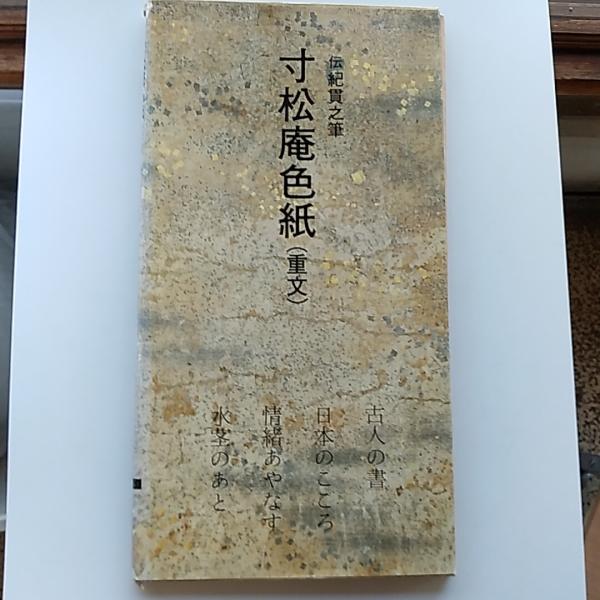 伝紀貫之筆
寸松庵色紙(重文)
古人の書
日本のこころ
情緒あやなす
水茎のあと